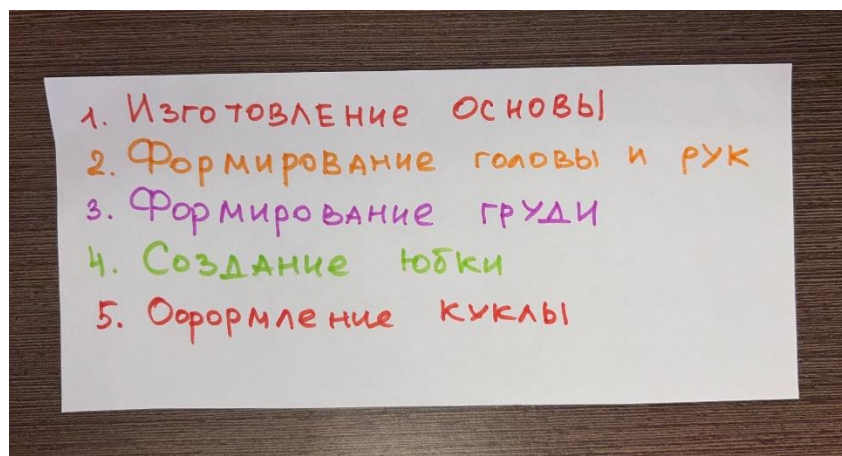 1. Изготовление основы
2. Формирование головы и рук
3. Формирование груди
4. Создание юбки
5. Оформление куклы